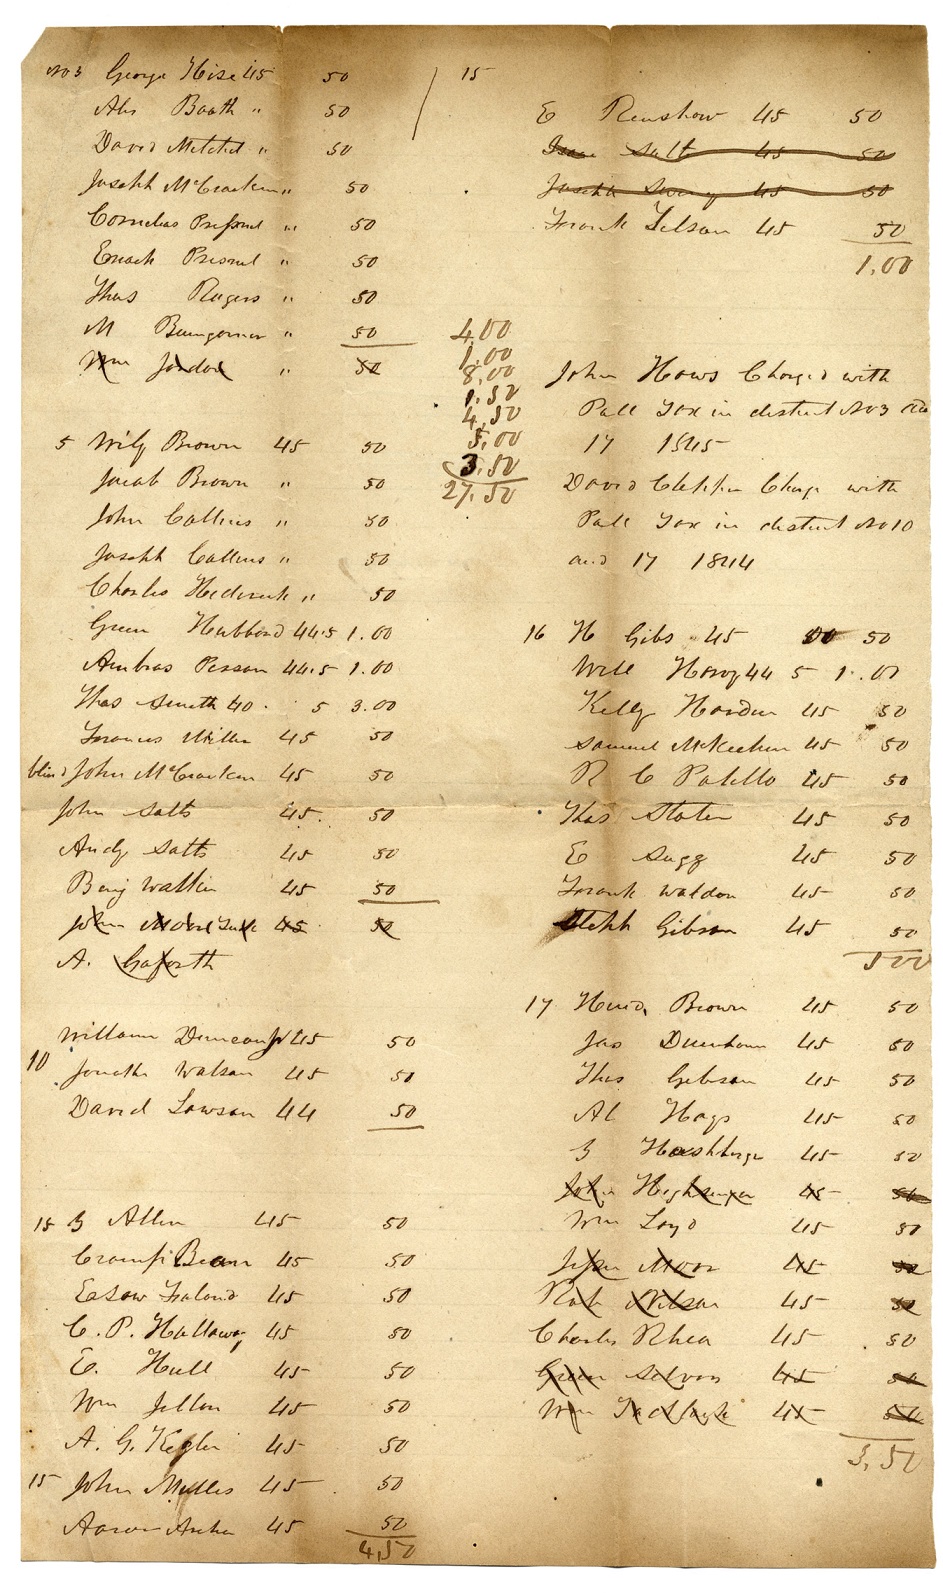 No 3 George Hise 45 50
Abs Booth " 50
David Mitchel " 50
Joseph McCracken " 50
Cornelias Presnel " 50
Enoch Presnel " 50
Thos Rogers " 50
M Bumgarner " 50
Wm Jordon " 50
5 Wily Brown 45 50
Jacob Brown " 50
John Collins " 50
Joseph Collins " 50
Charles Hedrick " 50
Green Hubbard 44.5 1.00
Ambros Person 44.5 1.00
Thos Smith 40 5 3.00
Frances Miller 45 50
blind John McCracken 45 50
John Salts 45 50
Andy Salts 45 50
Benj Watkin 45 50
John Moore 45 50
A. Goforth
William Duncan 45 50
10 Jonathn Watson 45 50
David Lawson 44 50
15 J Allen 45 50
Bean 45 50
Esaw 45 50
C. P. Hallaway 45 50
E. Hull 45 50
Wm 45 50
A. G. 45 50
15 John Mulles 45 50
Aaron Archer 45 50
4.50
4.00
1.00
8.00
1.50
4.50
5.00
3.50
27.50
15
E Renshaw 45 50
Isaac Salt 45 50
Joseph 45 50
Frank 45 50
1.00
John Haws Charged with
Poll Tax in district No 3 and
17 1845
David Charge with
Poll Tax in district No 10
and 17 1844
16 H Gibs 45 50
Will 44 5 1.00
Kelly Harden 45 50
Samuel McKeehen 45 50
R C Patillo 45 50
Thos Staten 45 50
E Sugg 45 50
Frank Waldon 45 50
Steph Gibson 45 50
500
17 Brown 45 50
Jas Dunham 45 50
Thos Gibson 45 50
Al Hags 45 50
J 45 50
John 45 50
Wm Loyd 45 50
Moor 45 50
Rob Nelson 45 50
Charles Rhea 45 50
Green 45 50
Wm 45 50
3.50